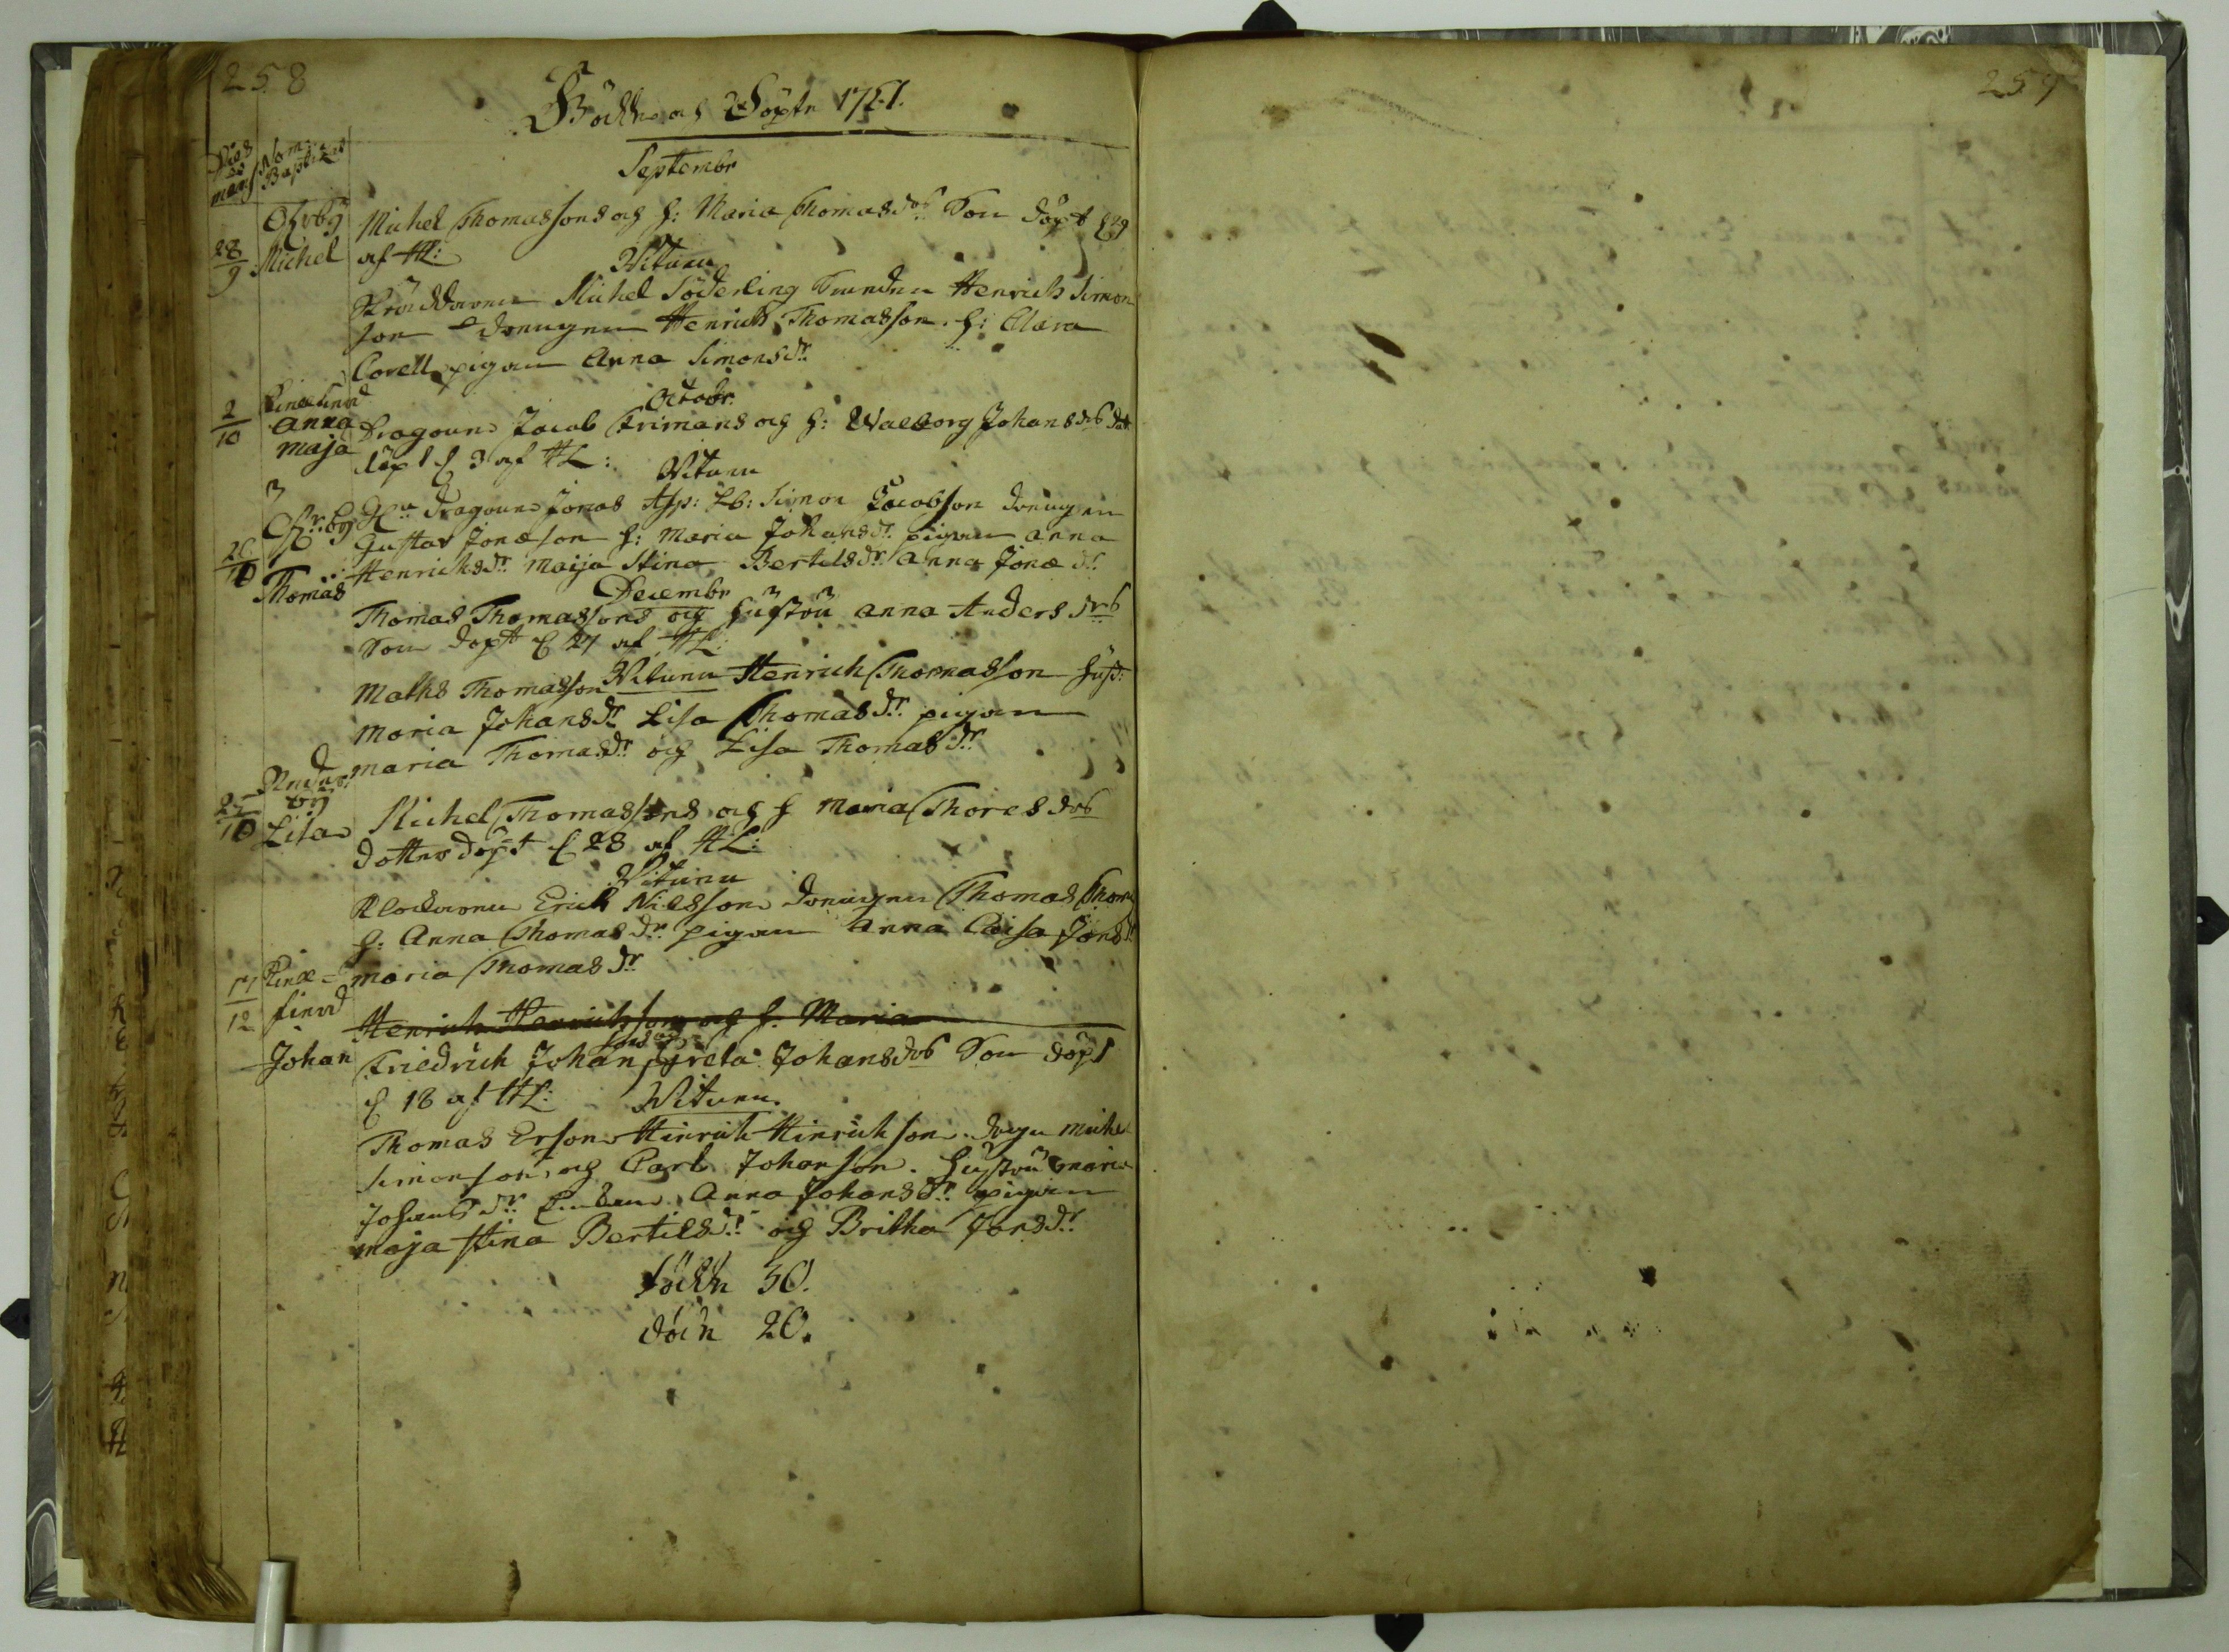 258
259
Födde och Döpte 1751.
Dies et mens
Nom: Baptizat
Septembr
Michel Thomassons och h: Maria Thomas drs Son döpt d 29
28/9 Michel af HL:
Vitnen
Michel Söderling Henrich Simon
son drengen Henrich Thomasson. h: Clara
Corell pigan Anna Simonsdr
Octobr.
2/10 Anna Maja
Dragoun Jacob Frimans och h: Walborg Johans drs dotr
döpt d 3 af HL:
Vitnen
dragoun Jonas Asp: Simon Jacobson drengen
Gustav Jonæson h: Maria Johansdr pigan anna
Henrichsdr Maija Stina Bertelsdr Anna Jonæ dr
Decembr
26/10 Thomas
Thomas Thomassons och hustru anna Anders drs
Son döpt d 27 af HL:
Maths Thomasson Vitnen Henrich Thomasson hust:
Maria Johansdr Lisa Thomasdr pigan
maria Thomasdr och Lisa Thomasdr
Lisa
Michel Thomassons och h maria Thores drs
dotter döpt d 28 af HL:
Vitnen
Klockaren Erich Nilsson drengen Thomas Thom
h: Anna Thomasdr pigan Anna Caisa Jonsdr
maria Thomasdr
17/12
Henrich Henrichsson och h. Maria
Johan Friedrich Johansons och Greta Johansdrs Son döpt
d 18 af HL: Vitnen.
Thomas Erson Hinrich Hinrichson drgn michel
Simonson och Carl Johanson. hustru maria
Johansdr Enkan Anna Johansdr pigan
maja stina Bertilsdr och Britha Jonsdr
födde 30.
döde 20.